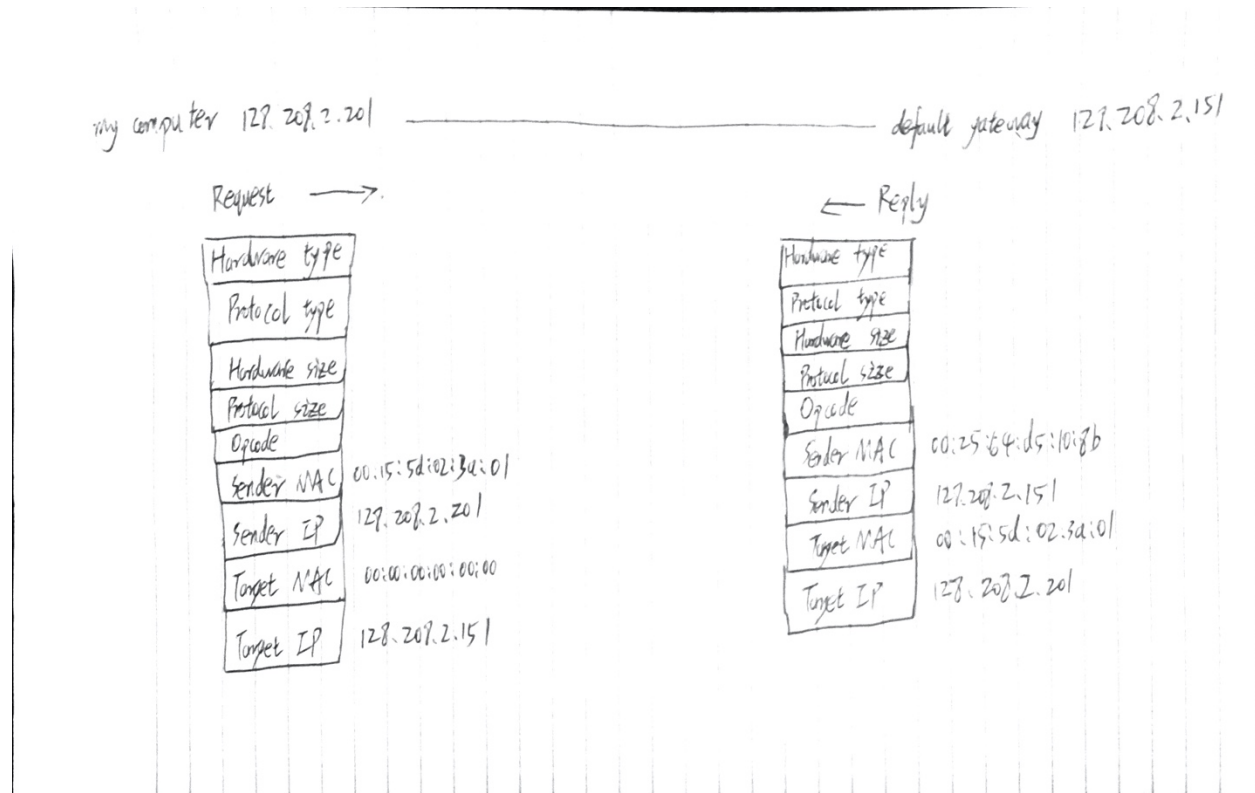 my computer 128.208.2.201
default gateway 128.208.2.151
Request
Hardware type
Protocol type
Hardware size
Protocol size
Opcode
Sender MAC 00:15:5d:02:3a:01
Sender IP 128.208.2.201
Target MAC 00:00:00:00:00:00
Target IP 128.208.2.151
Reply
Hardware type
Protocol type
Hardware size
Protocol size
Opcode
Sender MAC 00:25:64:d5:10:8b
Sender IP 128.208.2.151
Target MAC 00:15:5d:02:3a:01
Target IP 128.208.2.201